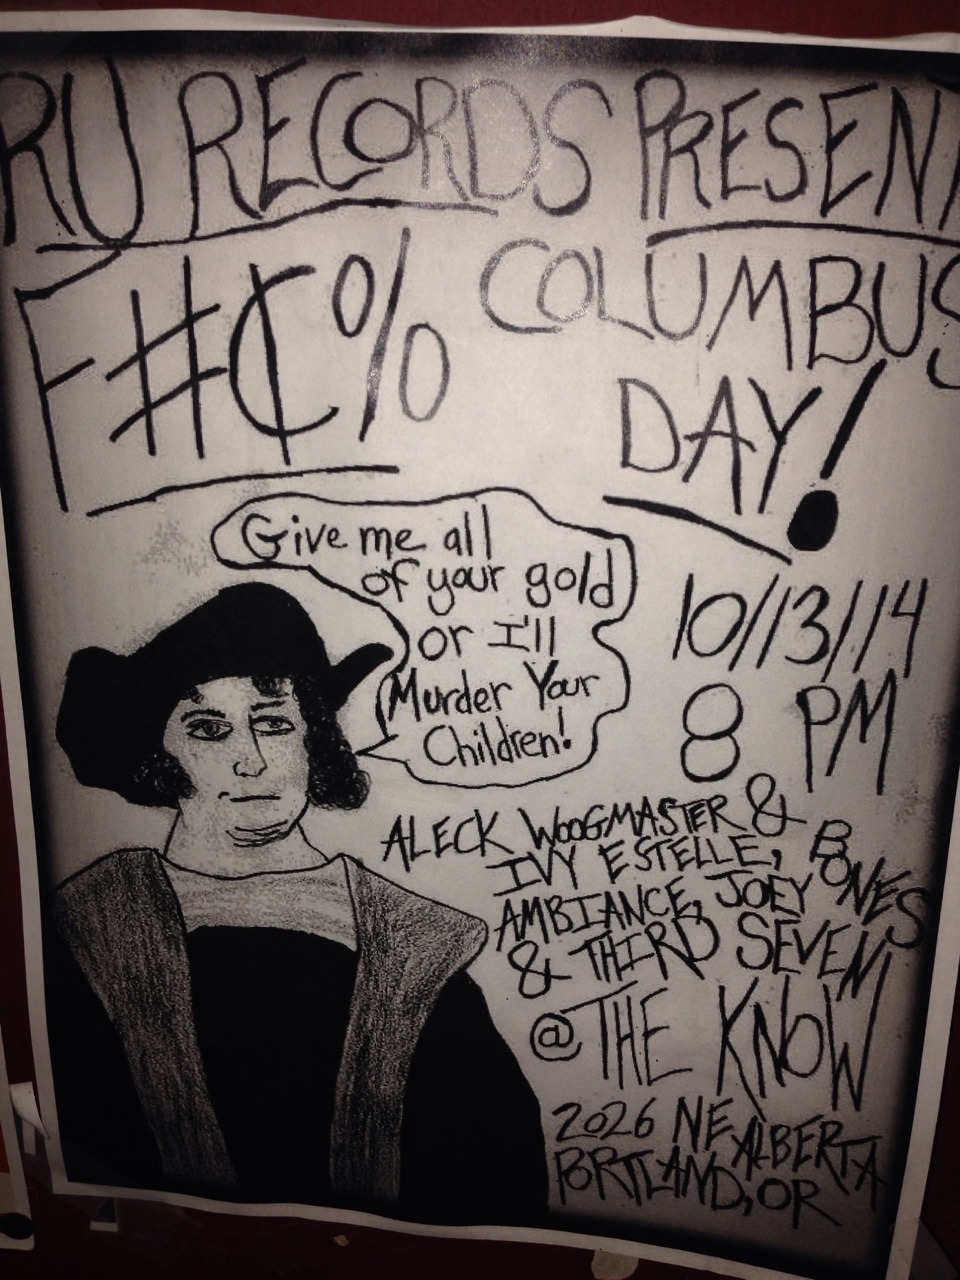 RU RECORDS PRESENT
F#₵% COLUMBUS
DAY!
Give me all
of your gold
or I'll
Murder Your
Children!
10/13/14
8 PM
ALECK WOOGMASTER &
IVY ESTELLE, BONES
AMBIANCE, JOEY
& THIRD SEVEN
@ THE KNOW
2026 NE ALBERTA
PORTLAND, OR